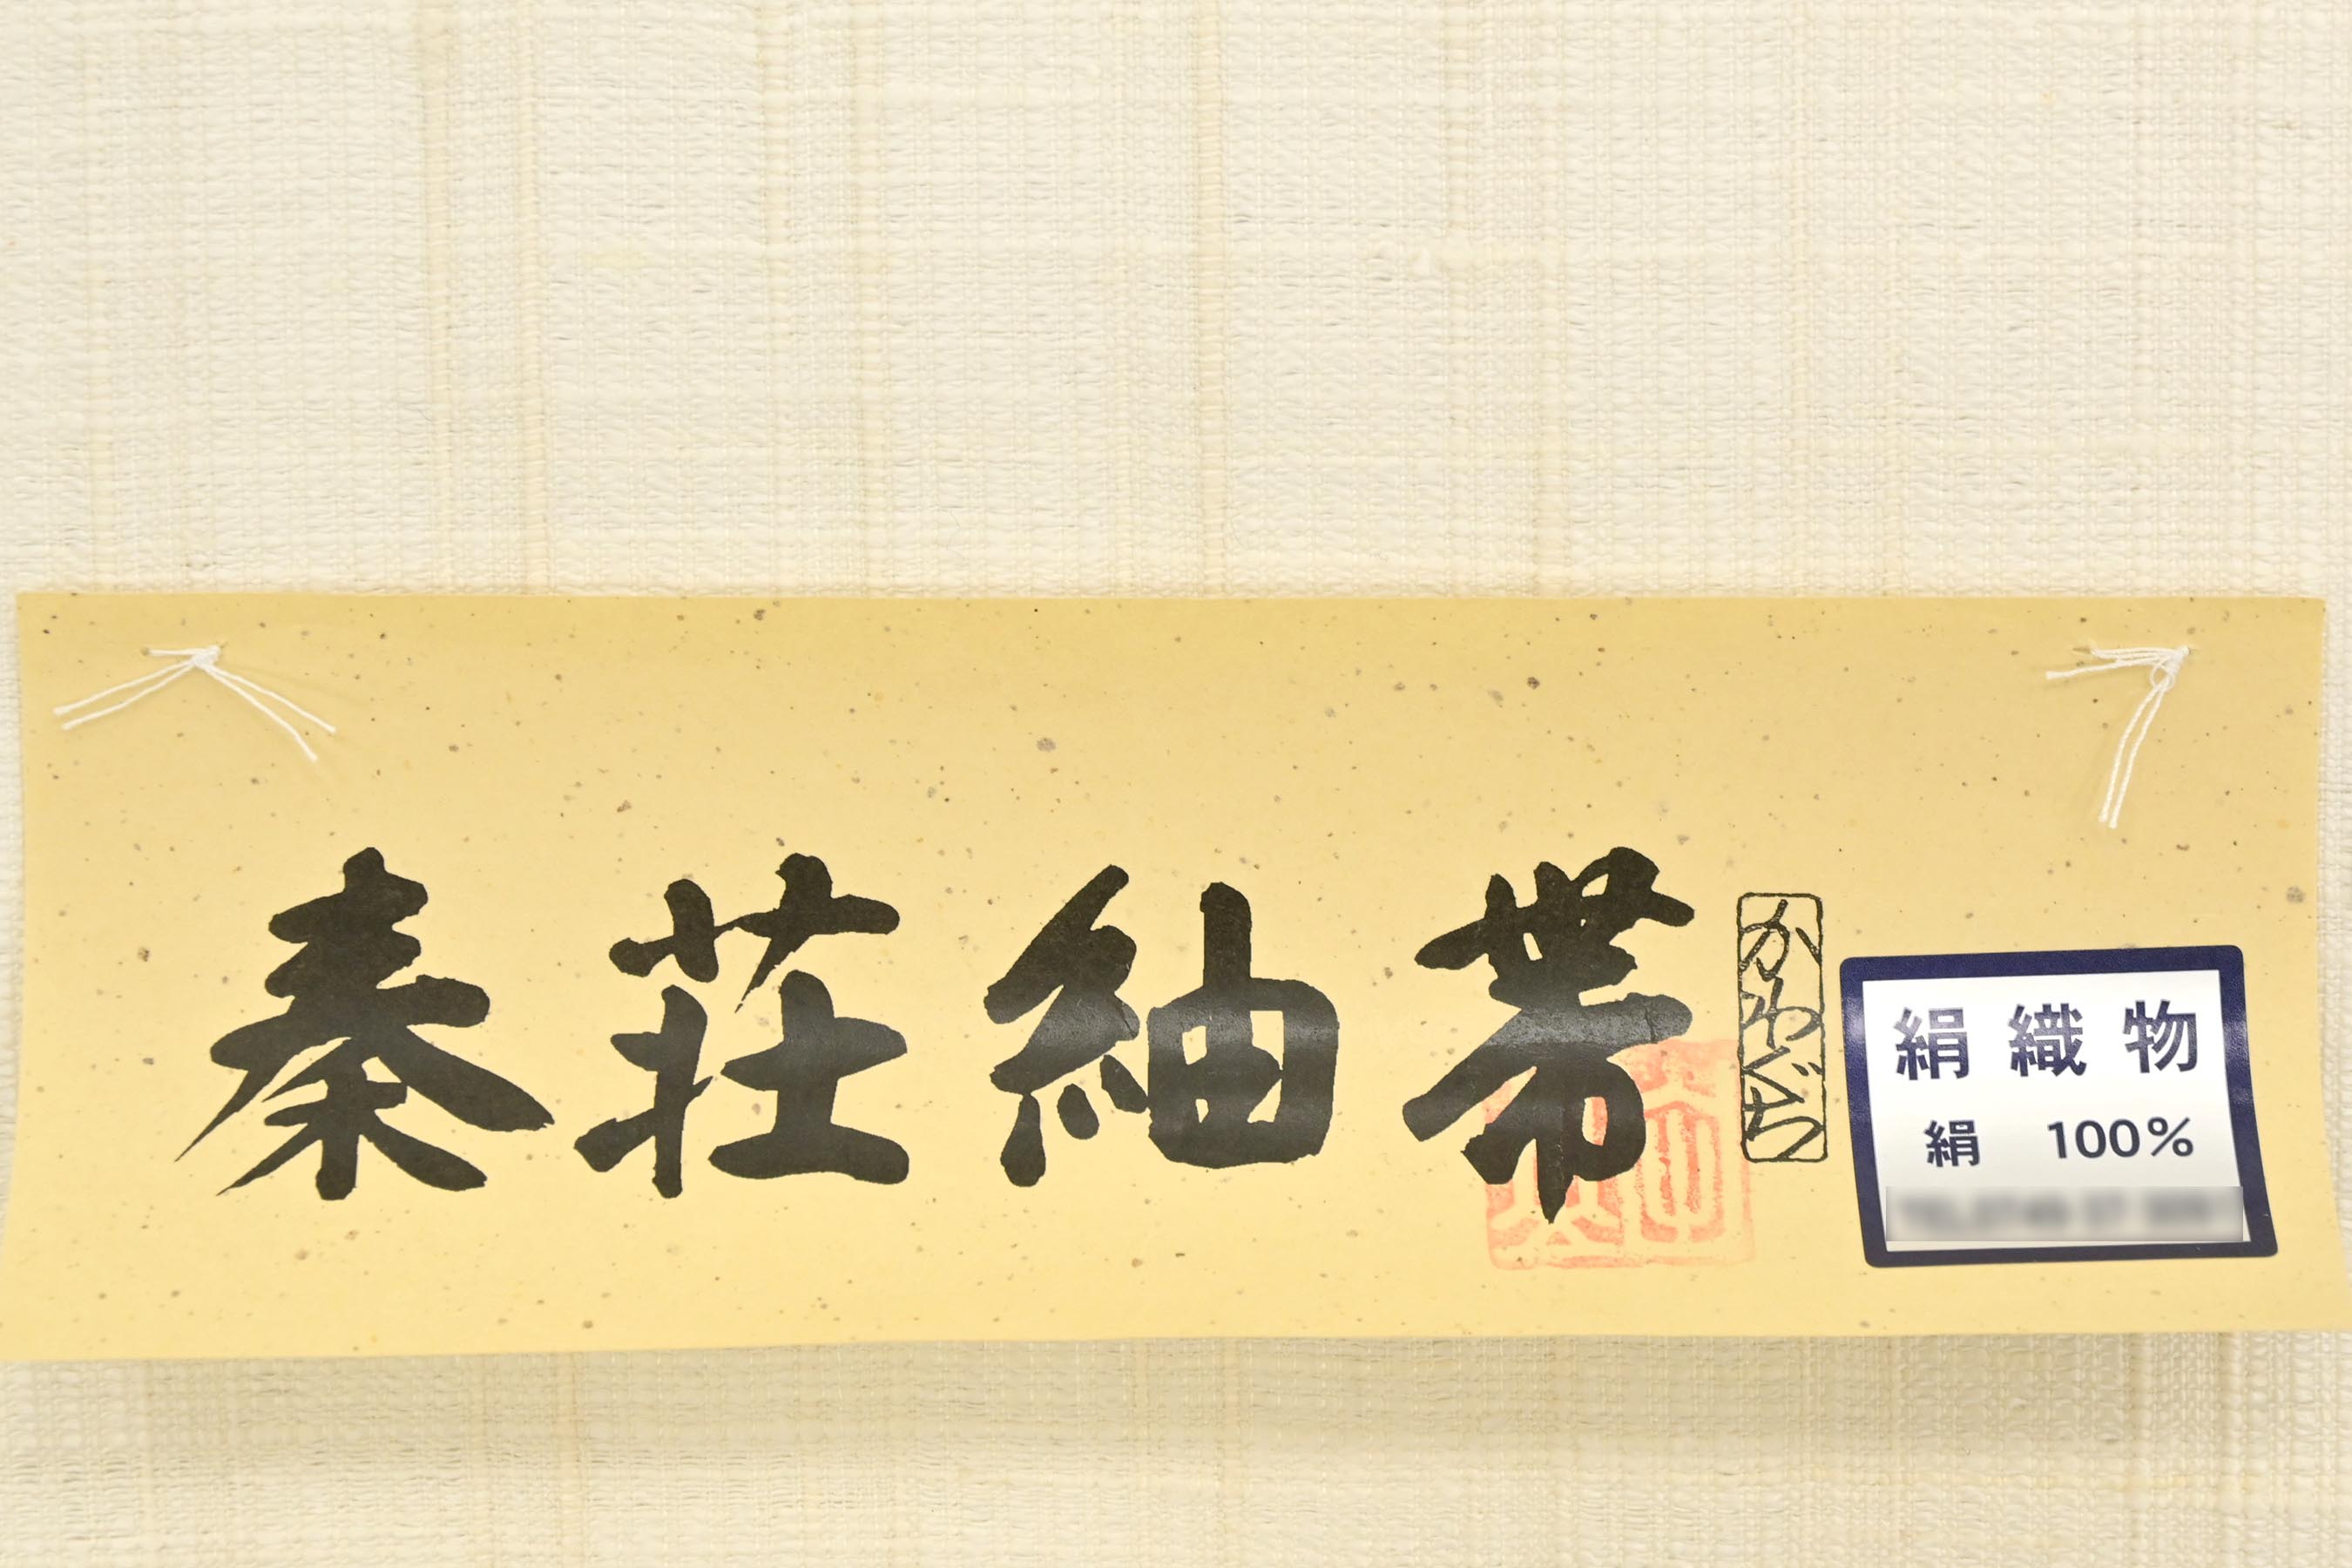 秦荘紬帯
かわぐち
絹織物
絹 100%